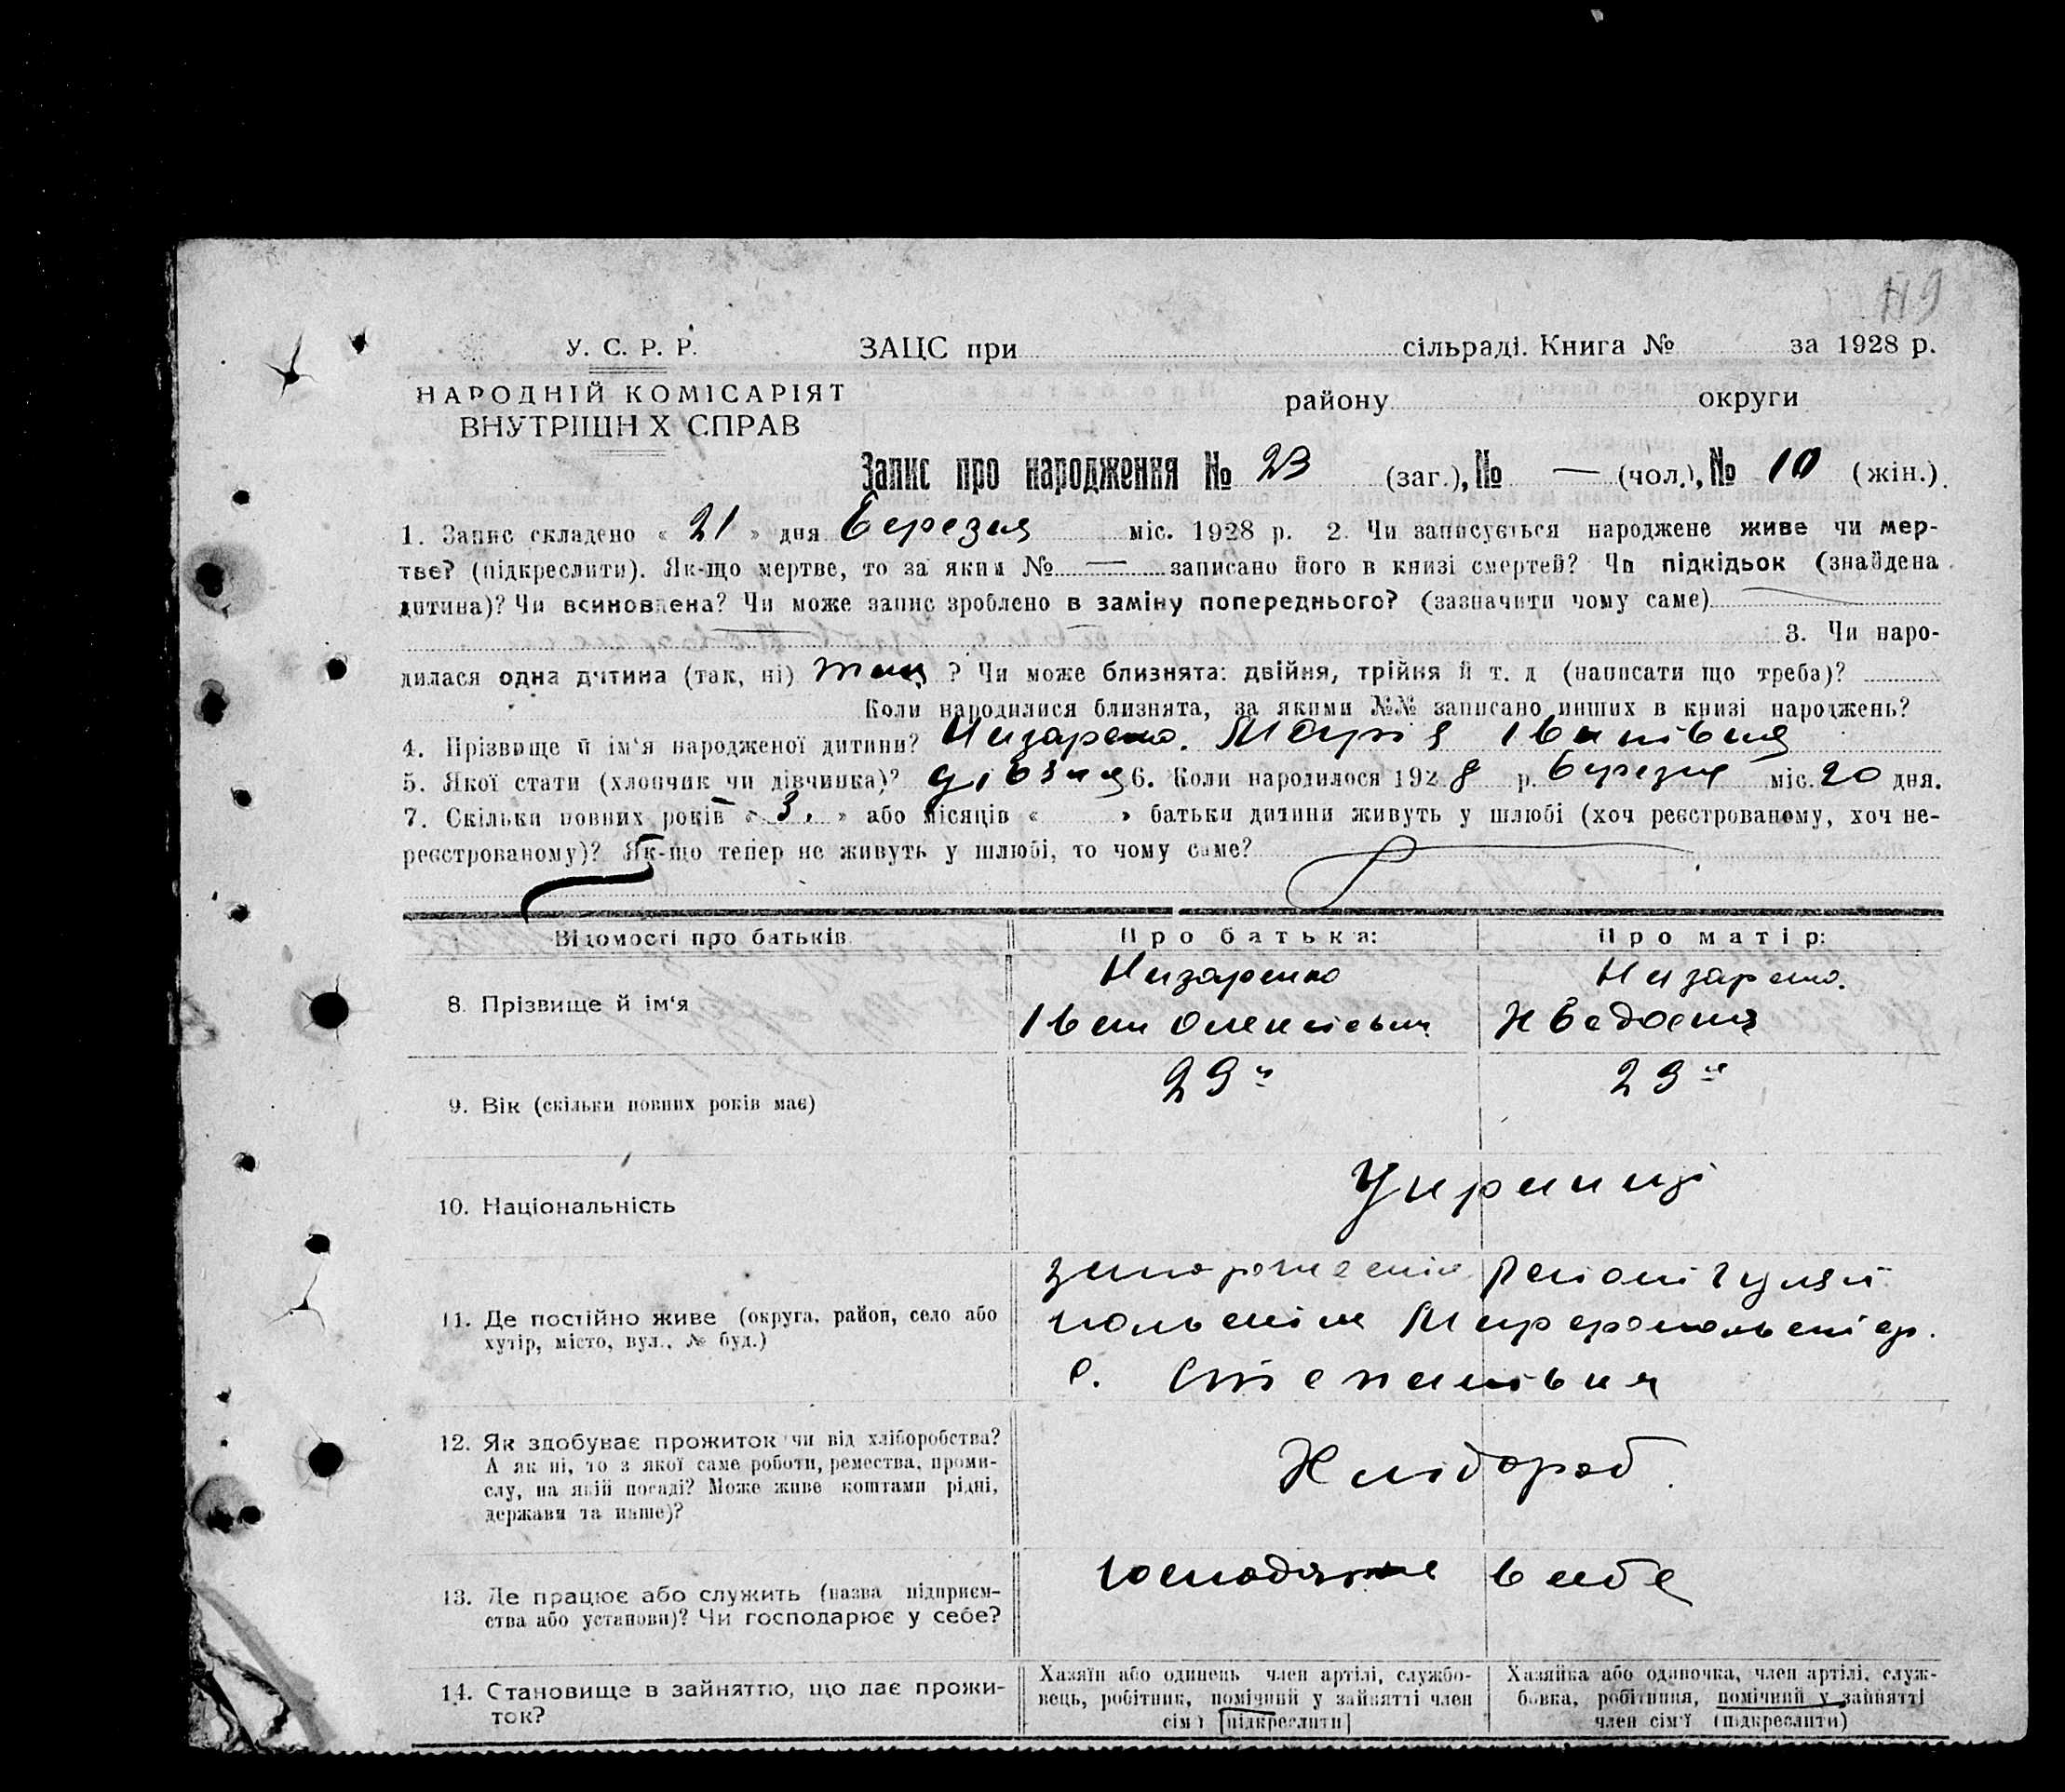 119
У. С. Р. Р.
ЗАЦС при сільраді. Книга № за 1928 р.
НАРОДНІЙ КОМІСАРІЯТ
району округи
ВНУТРІШН Х СПРАВ
Запис про народження № 23 (заг.), № — (чол.), № 10 (жін.).
1. Запис складено « 21 » дня березня міс. 1928 р. 2. Чи записується народжене живе чи мер-
тве? (підкреслити). Як-що мертве, то за яким № — записано його в книзі смертей? Чи підкідьок (знайдена
дитина)? Чи всиновлена? Чи може запис зроблено в заміну попереднього? (зазначити чому саме)
3. Чи наро-
дилася одна дитина (так, ні) так ? Чи може близнята: двійня, трійня й т. д (написати що треба)?
Коли народилися близнята, за якими №№ записано инших в книзі народжень?
4. Прізвище й ім'я народженої дитини? Назаренко. Марія Іванівна
5. Якої стати (хлопчик чи дівчинка)? 6. Коли народилося 1928 р. березня міс. 20 дня.
7. Скільки повних років « 3. » або місяців « » батьки дитини живуть у шлюбі (хоч реєстрованому, хоч не-
реєстрованому)? Як-що тепер не живуть у шлюбі, то чому саме?
Відомості про батьків
Про батька:
Про матір:
8. Прізвище й ім'я
Назаренко
Іван Олексієвич
Назаренко.
9. Вік (скільки повних років має)
29
23
10. Національність
Українці
11. Де постійно живе (округа, район, село або
хутір, місто, вул., № буд.)
с. Степанівка
12. Як здобуває прожиток чи від хліборобства?
А як ні, то з якої саме роботи, ремества, проми-
слу, на якій посаді? Може живе коштами рідні,
держави та инше)?
Хлібороб.
13. Де працює або служить (назва підприєм-
ства або установи)? Чи господарює у себе?
в себе
14. Становище в зайняттю, що дає прожи-
ток?
Хазяїн або одинець член артілі, службо-
вець, робітник, помічний у зайнятті член
сім'ї [підкреслити]
Хазяйка або одиночка, член артілі, служ-
бовка, робітниця, помічний у зайнятті
член сім'ї (підкреслити)